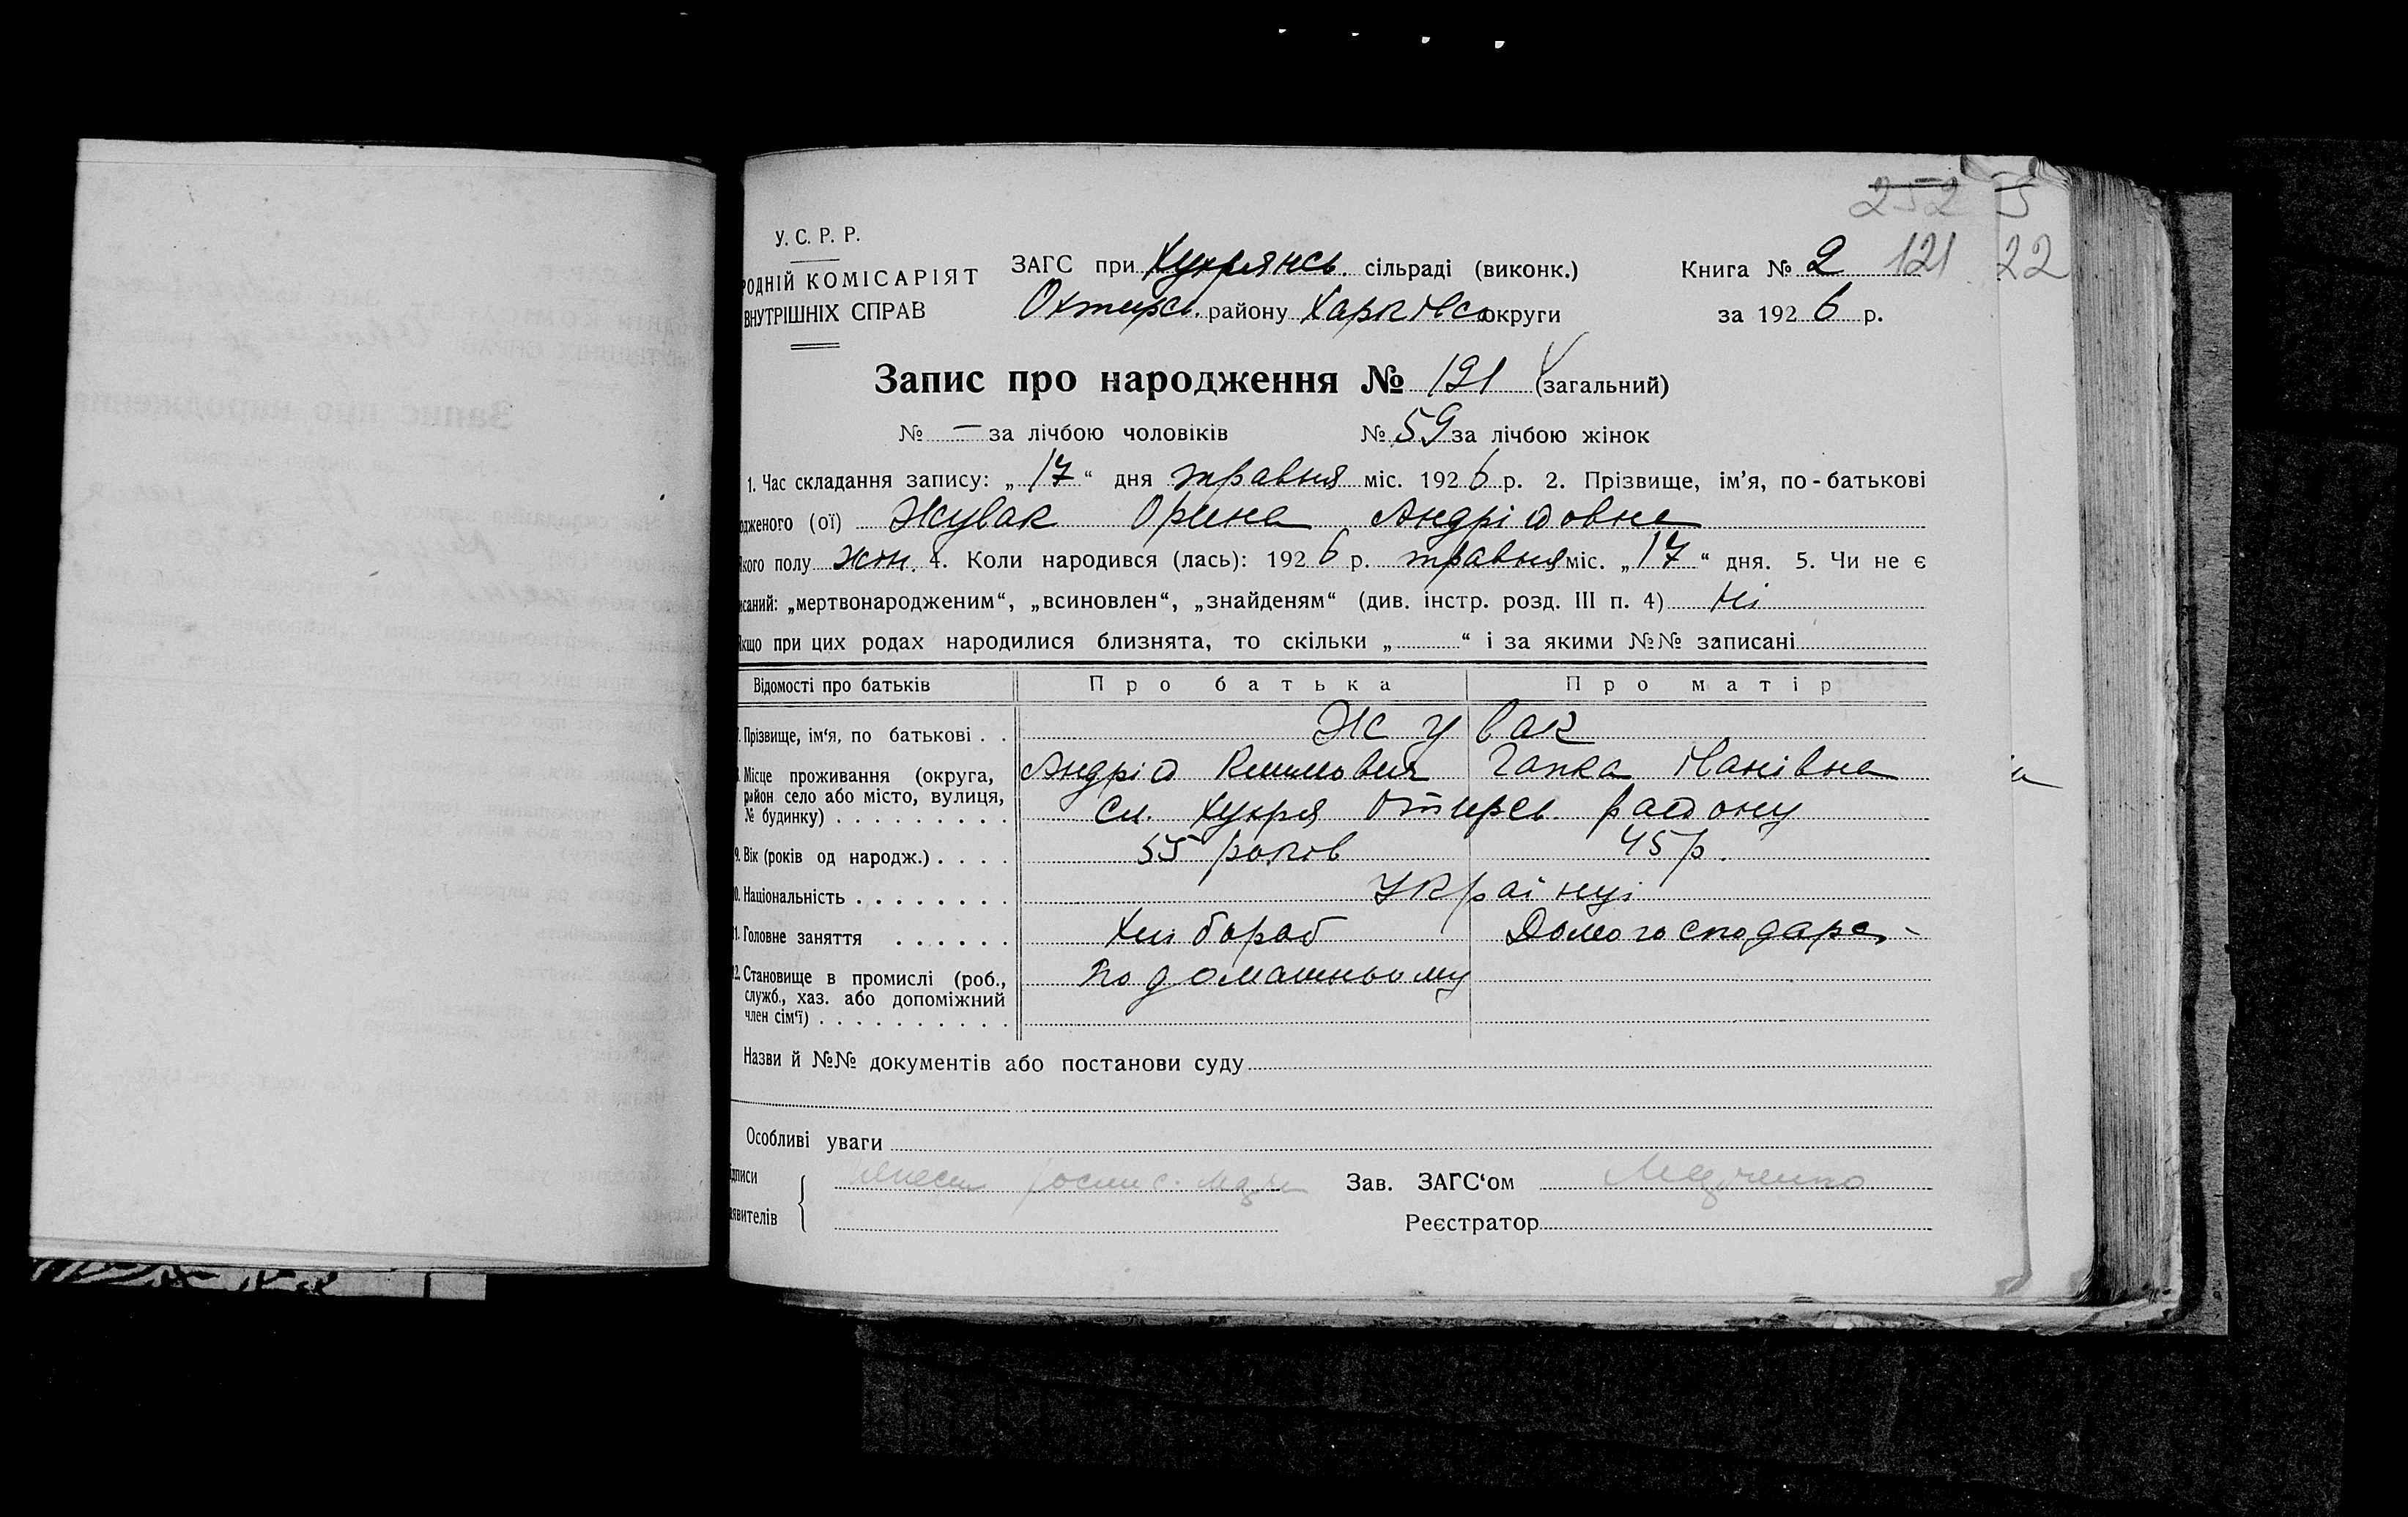 252 5
У. С. Р. Р.
РОДНІЙ КОМІСАРІЯТ
ВНУТРІШНІХ СПРАВ
ЗАГС при Хухрянсь. сільраді (виконк.)
Охтирсь. району Харківсь округи
Книга № 2 121 22
за 1926 р.
Запис про народження № 121 (загальний)
№ — за лічбою чоловіків № 59 за лічбою жінок
1. Час складання запису: „17“ дня травня міс. 1926 р. 2. Прізвище, ім'я, по-батькові
одженого (ої) Жувак Орина Андрійовна
якого полу жін. 4. Коли народився (лась): 1926 р. травня міс. „17“ дня. 5. Чи не є
исаний: „мертвонародженим“, „всиновлен“, „знайденям“ (див. інстр. розд. III п. 4) Ні
Якщо при цих родах народилися близнята, то скільки „ “ і за якими №№ записані
Відомості про батьків Про батька Про матір
Прізвище, ім'я, по батькові . . Жувак
Місце проживання (округа, Андрій Климович Гапка Іванівна
район село або місто, вулиця,
№ будинку) . . . . . . . . . . Сл. Хухря Охтирсь. району
9. Вік (років од народж.) . . . . 55 років 45 р.
10. Національність . . . . . . . . Українці
11. Головне заняття . . . . . . Хлібороб Домогосподарс.
12. Становище в промислі (роб., По домашньому
служб., хаз. або допоміжний
член сім'ї) . . . . . . . . . .
Назви й №№ документів або постанови суду
Особливі уваги
ідписи Зав. ЗАГС'ом
аявителів Реєстратор